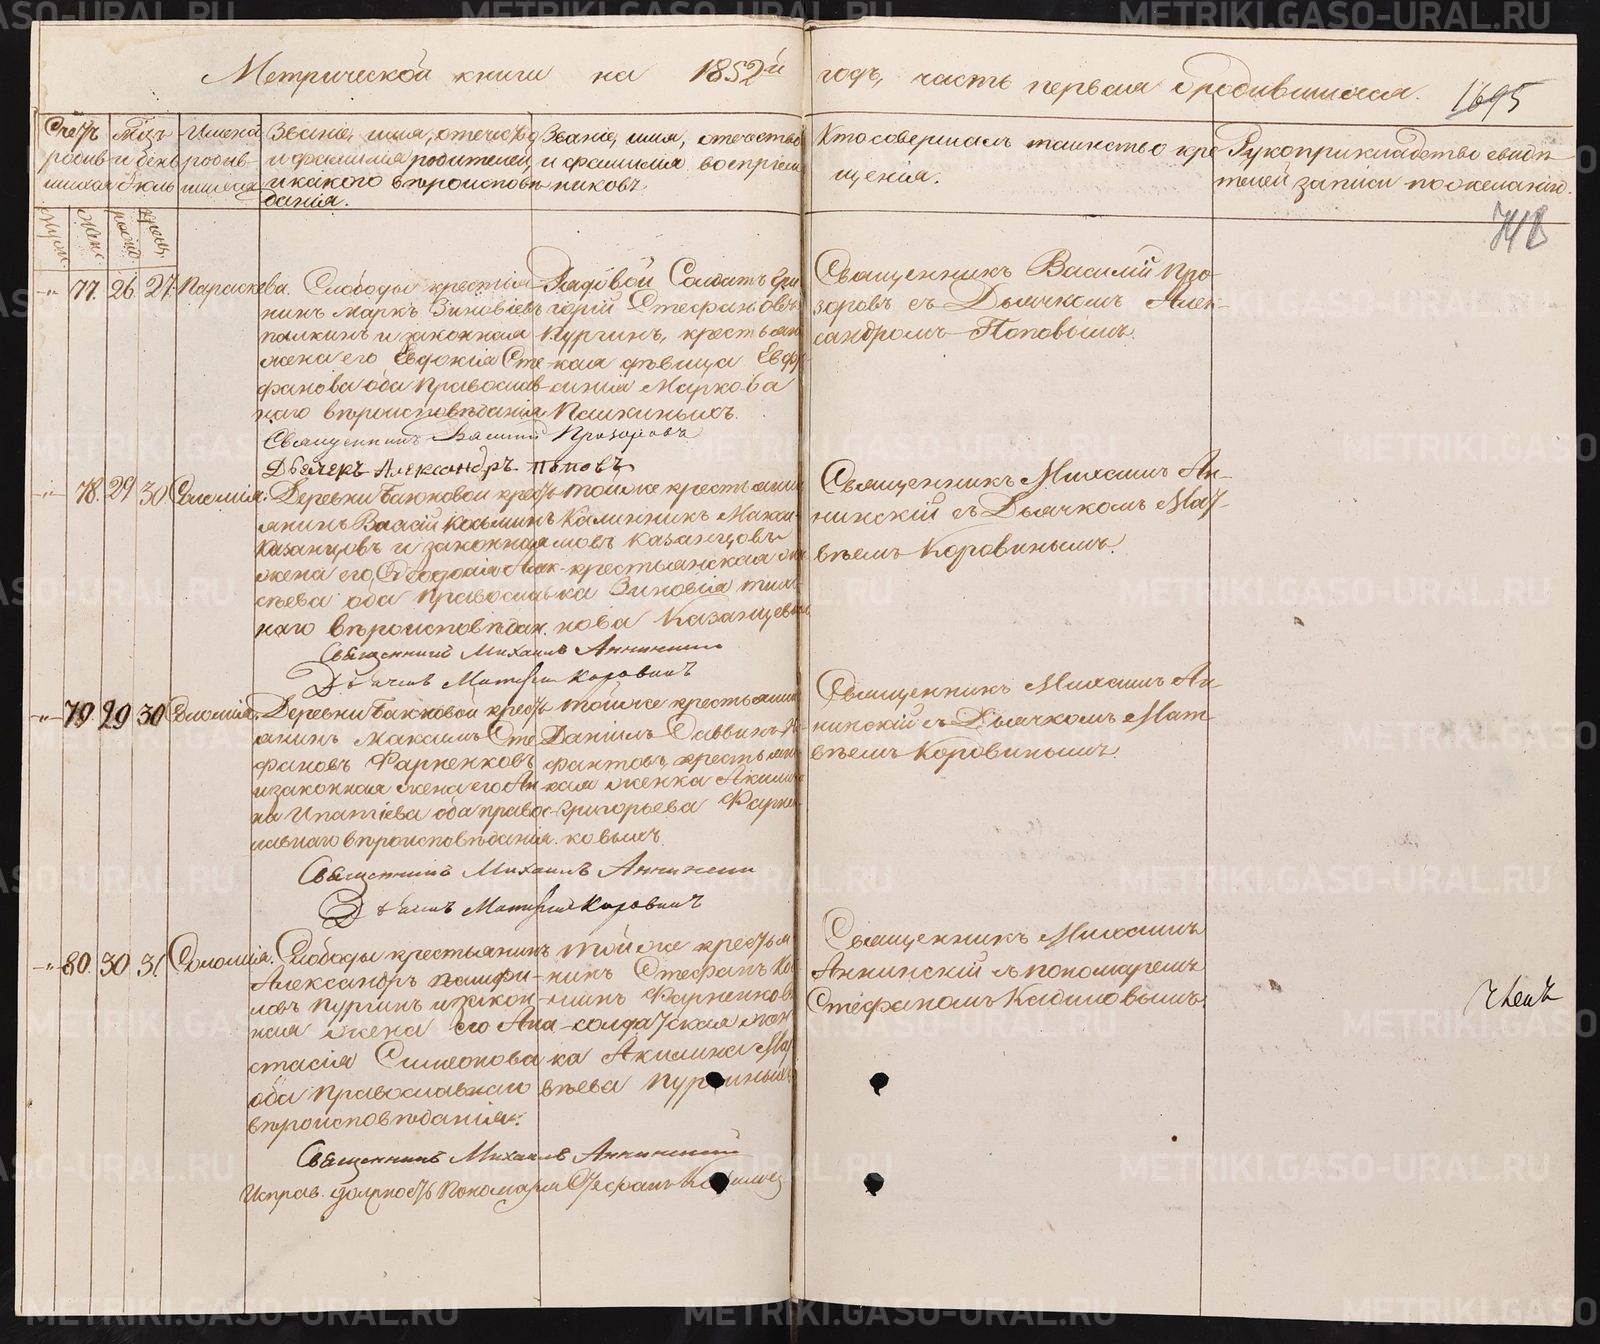 Метрической книги на 1852й годъ, часть первая о родившихся. 1695
Счетъ родив-шихся
Мѣц. и день Іюль
Имена родив-шихся
Званіе, имя, отечество
и фамилія родителей,
и какого вѣроисповѣ
данія.
Званіе, имя, отечество
и фамилія воспріем
никовъ.
Кто совершалъ таинство кре
щенія.
Рукоприкладство свидѣ
телей записи по желанію.
718
77. 26. 27. Параскева.
Слободы крестья-
нинъ Маркъ Зиновіевъ
палкинъ и законная
жена его Евдокія Сте-
фанова оба Православ-
наго вѣроисповѣданія
Рядовой Солдатъ Гри
горій Стефановъ
Пургинъ, крестьян
ская дѣвица Евфро
синія Маркова
Палкиныхъ.
Священникъ Василій Про-
зоровъ съ Дьячкомъ Алек-
сандромъ Поповымъ.
Священникъ Василій Прозоровъ
Дьячекъ Александръ Поповъ
78. 29 30. Соломія.
Деревни Баюковой кресть
янинъ Васій Косьминъ
Казанцовъ и законная
жена его, Алек-
сѣева оба православ-
наго вѣроисповѣдан.
той же крестьянинъ
Калинникъ Макси-
мовъ Казанцовъ
крестьянская жен
ка Зиновія Тихо
нова Казанцевых
Священникъ Михаилъ Ан-
нинскій съ Дьячкомъ Мат-
вѣемъ Коровинымъ.
Священникъ Михаилъ Аннинскій
Дьячекъ Матвѣй Коровинъ
79. 29 30 Соломія.
Деревни Баюковой кресть
янинъ Максимъ Сте
фановъ Фарненковъ
и законная жена его Ан
на Ипатіева оба правос-
лавнаго вѣроисповѣданія.
той же крестьянинъ
Даніилъ Саввинъ
крестьян
ская женка Акилина
Григорьева Фарнен
ковыхъ.
Священникъ Михаилъ Ан
нинскій съ Дьячкомъ Мат
вѣемъ Коровинымъ.
Священникъ Михаилъ Аннинскій
Дьячекъ Матвѣй Коровинъ
80. 30 31. Соломія.
Слободы крестьянинъ
Александръ Памфи-
ловъ Пургинъ и закон-
ная жена его Ана-
стасія Симеонова
оба Православнаго
вѣроисповѣданія.
той же крестья
нинъ Стефанъ
Фарненковъ
солдатская жен
ка Акилина Мат
вѣева Пургиныхъ
Священникъ Михаилъ
Аннинскій съ пономаремъ
Стефаномъ Кадиловымъ.
Членъ
Священникъ Михаилъ Аннинскій
Исправ. должность Пономаря Стефанъ Кадиловъ
METRIKI.GASO-URAL.RU